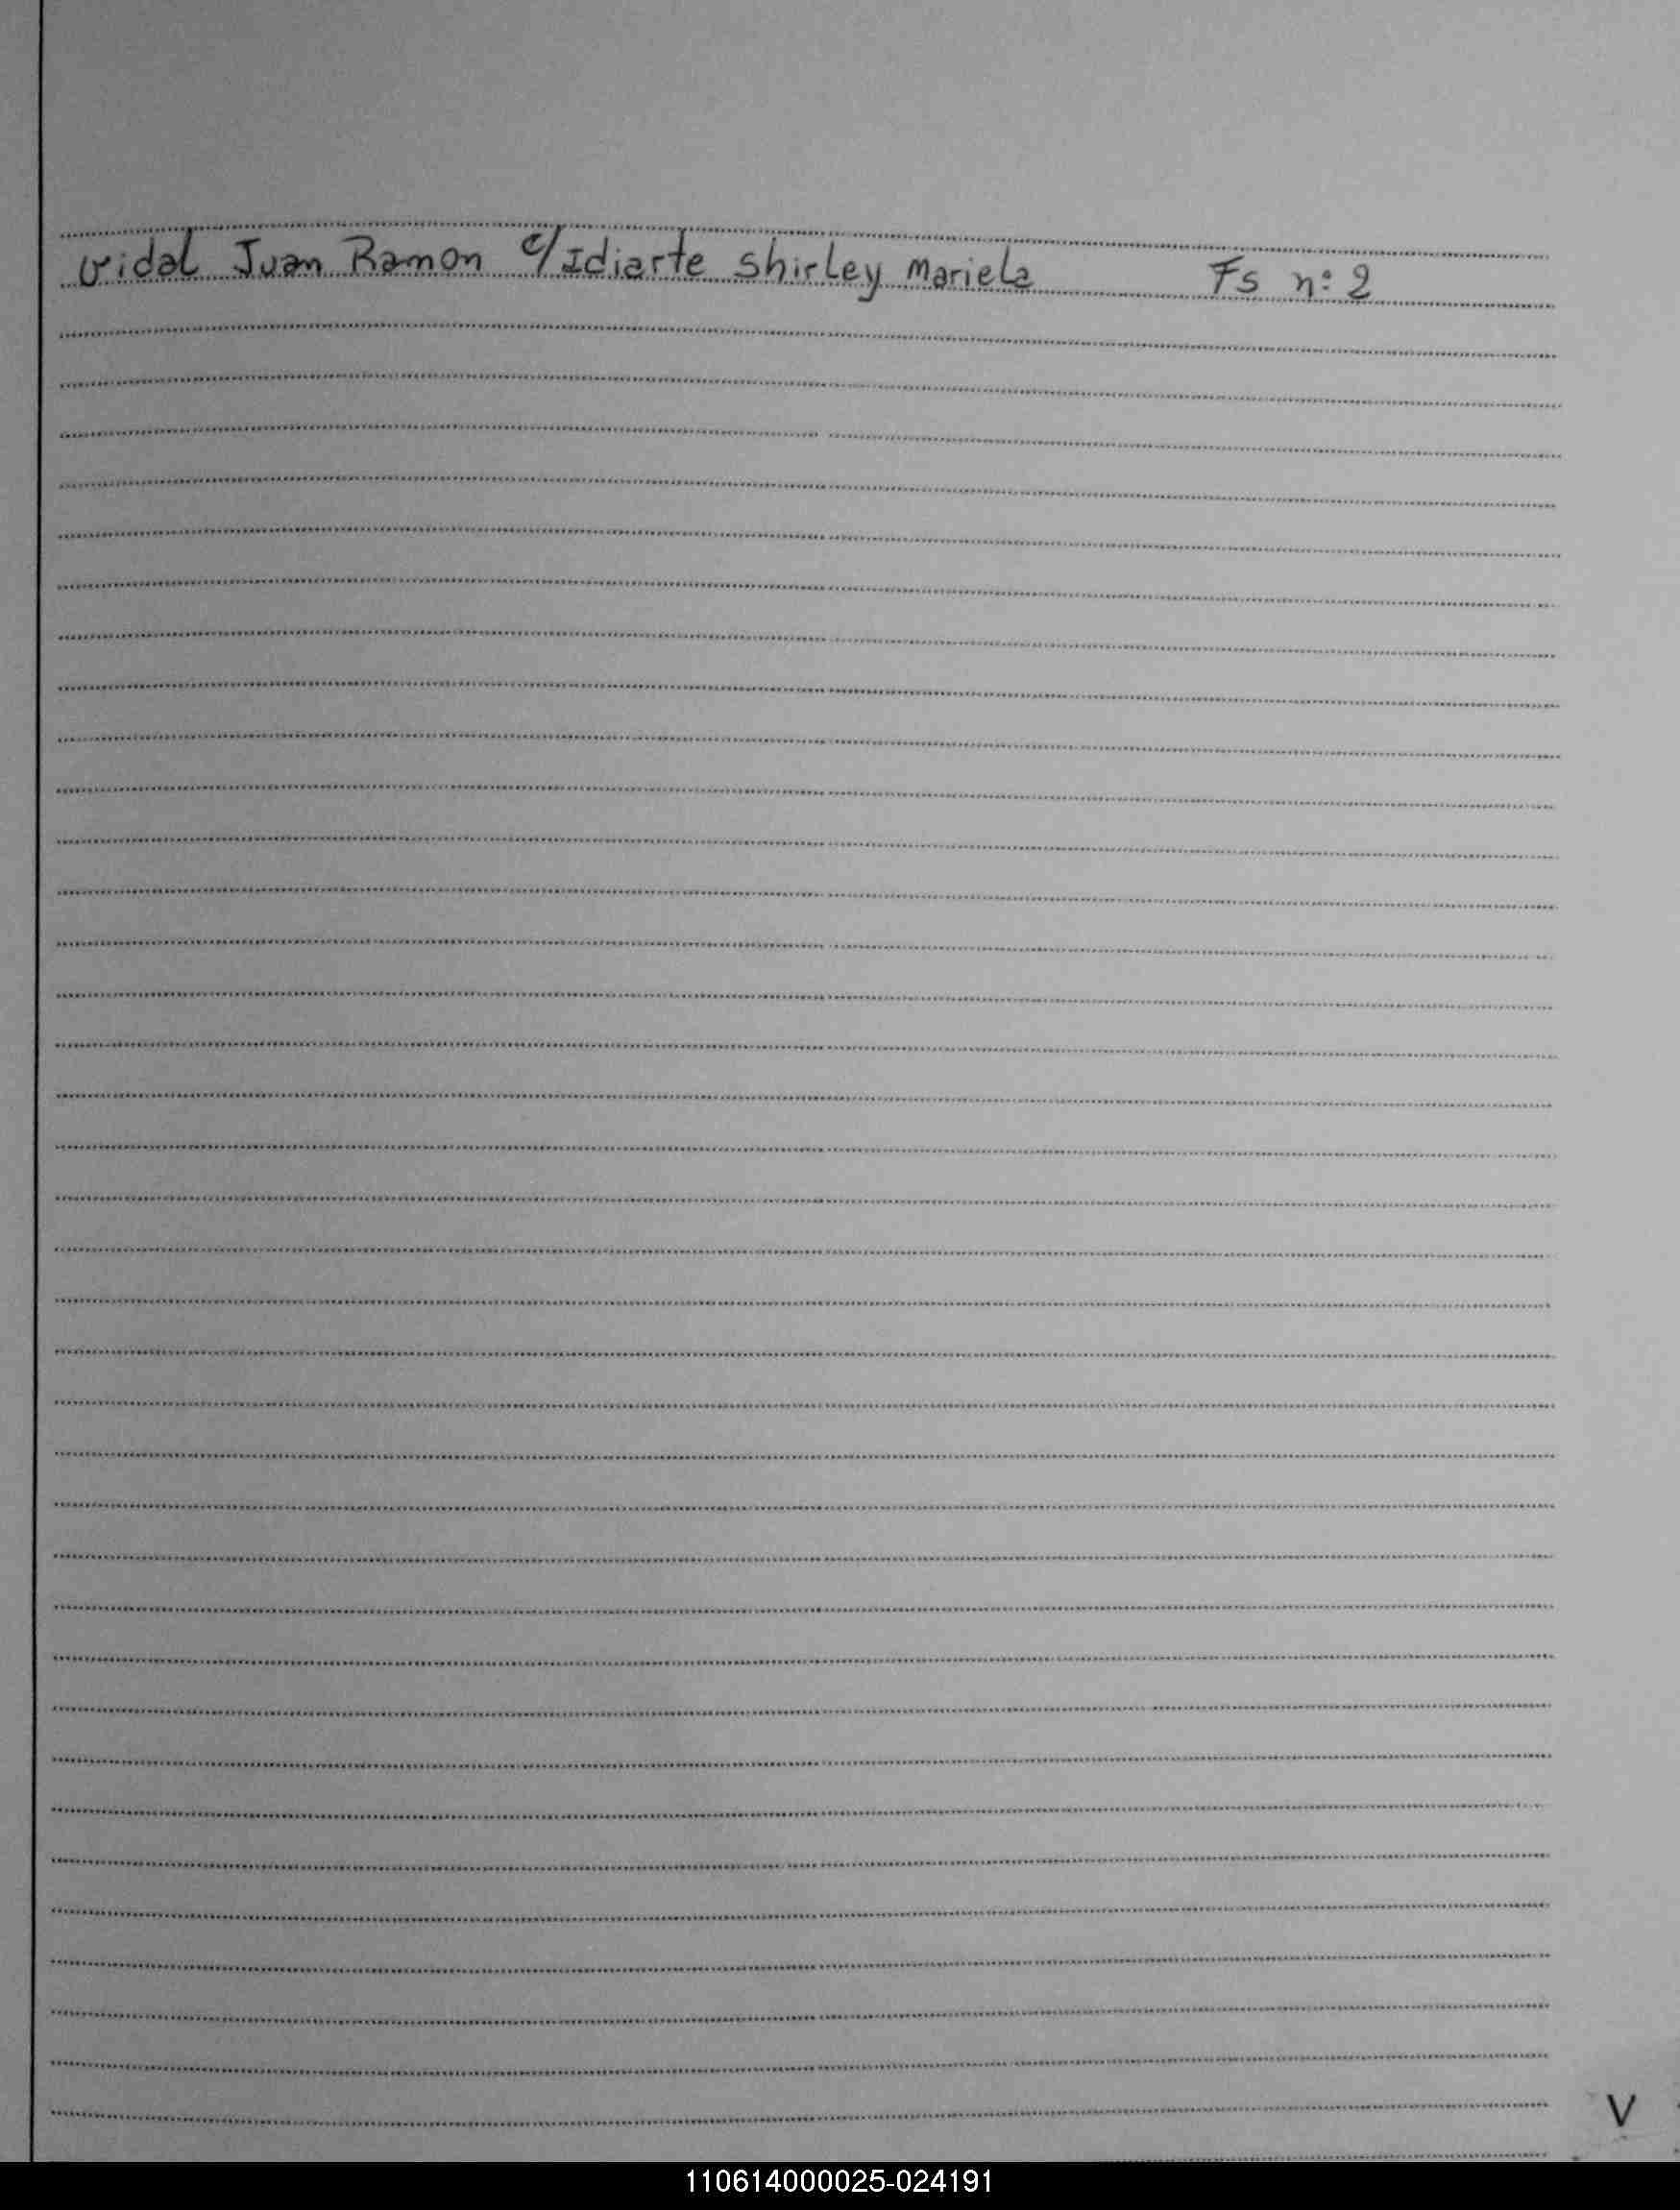 Vidal Juan Ramon c/Idiarte Shirley Mariela Fs n: 2
V
110614000025-024191